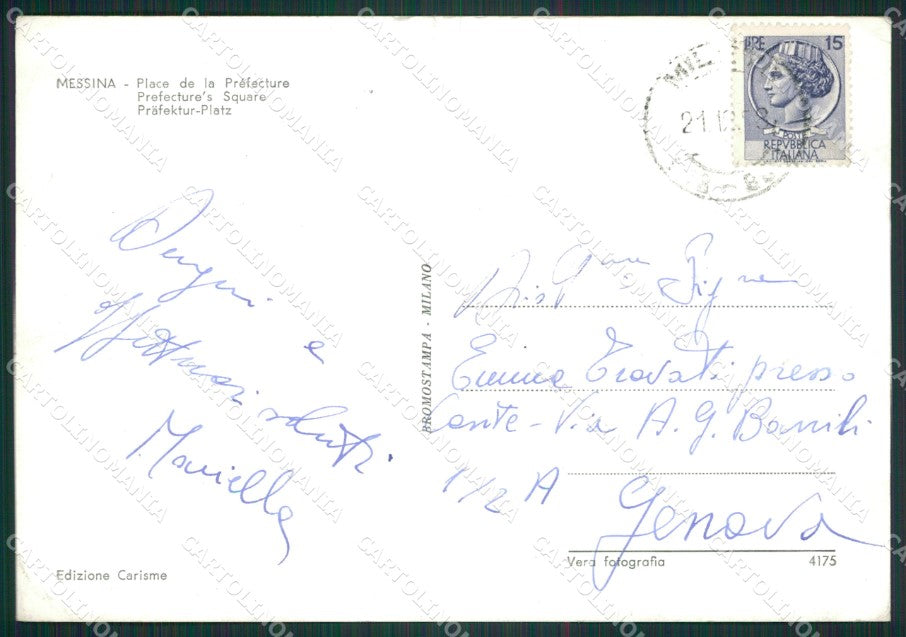 MESSINA - Place de la Préfecture
Prefecture's Square
Präfektur-Platz
LIRE 15
POSTE
REPVBBLICA
ITALIANA
21.12
Auguri
e
affettuosi saluti.
Mariella
PROMOSTAMPA - MILANO
Emma Trovati presso
Conte - Via A. G. Barrili
1/2 A
Genova
Edizione Carisme
Vera fotografia
4175
CARTOLINOMANIA